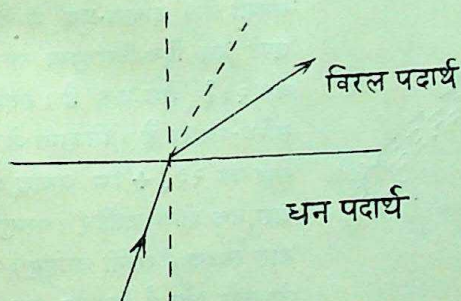 विरल पदार्थ
घन पदार्थ